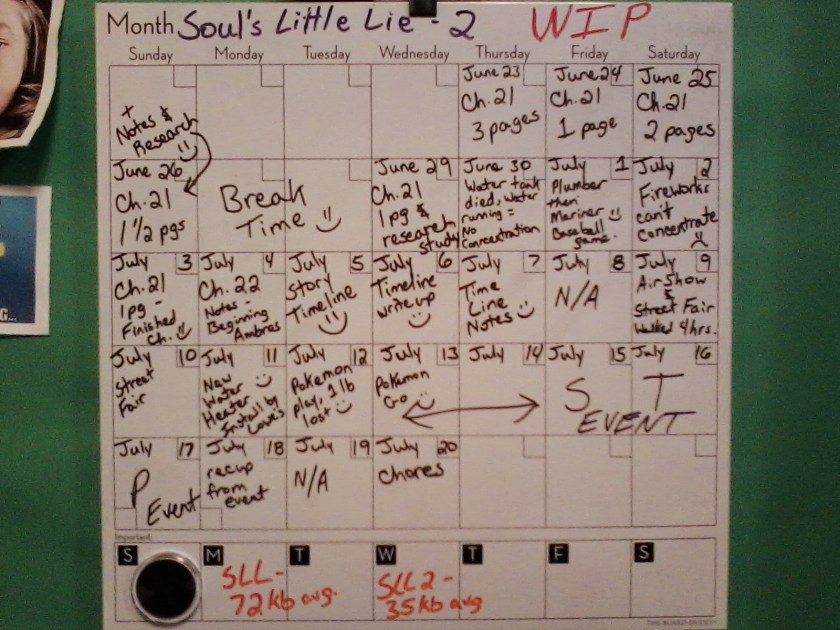 Month Soul's Little Lie - 2 WIP
Sunday Monday Tuesday Wednesday Thursday Friday Saturday
+
Notes &
Research
June 23
Ch. 21
3 pages
June 24
Ch. 21
1 page
June 25
Ch. 21
2 pages
June 26
Ch. 21
1 1/2 pgs
Break
Time
June 29
Ch. 21
1 pg &
research
study
June 30
Water tank
died, water
running =
No
Concentration
July 1
Plumber
then
Mariner
Baseball
game.
July 2
Fireworks
can't
concentrate
July 3
Ch. 21
1 pg -
Finished
Ch.
July 4
Ch. 22
Notes -
Beginning
Ambros
July 5
Story
Timeline
July 6
Timeline
write up
July 7
Time
Line
Notes
July 8
N/A
July 9
Air Show
&
Street Fair
Walked 4 hrs.
July 10
Street
Fair
July 11
New
Water
Heater
Install by
Lowe's
July 12
Pokemon
play, 1 lb
lost
July 13
Pokemon
Go
July 14
July 15
July 16
S T
EVENT
July 17
P
Event
July 18
recup
from
event
July 19
N/A
July 20
Chores
Important:
S M T W T F S
SLL -
72kb avg.
SLL 2 -
35kb avg